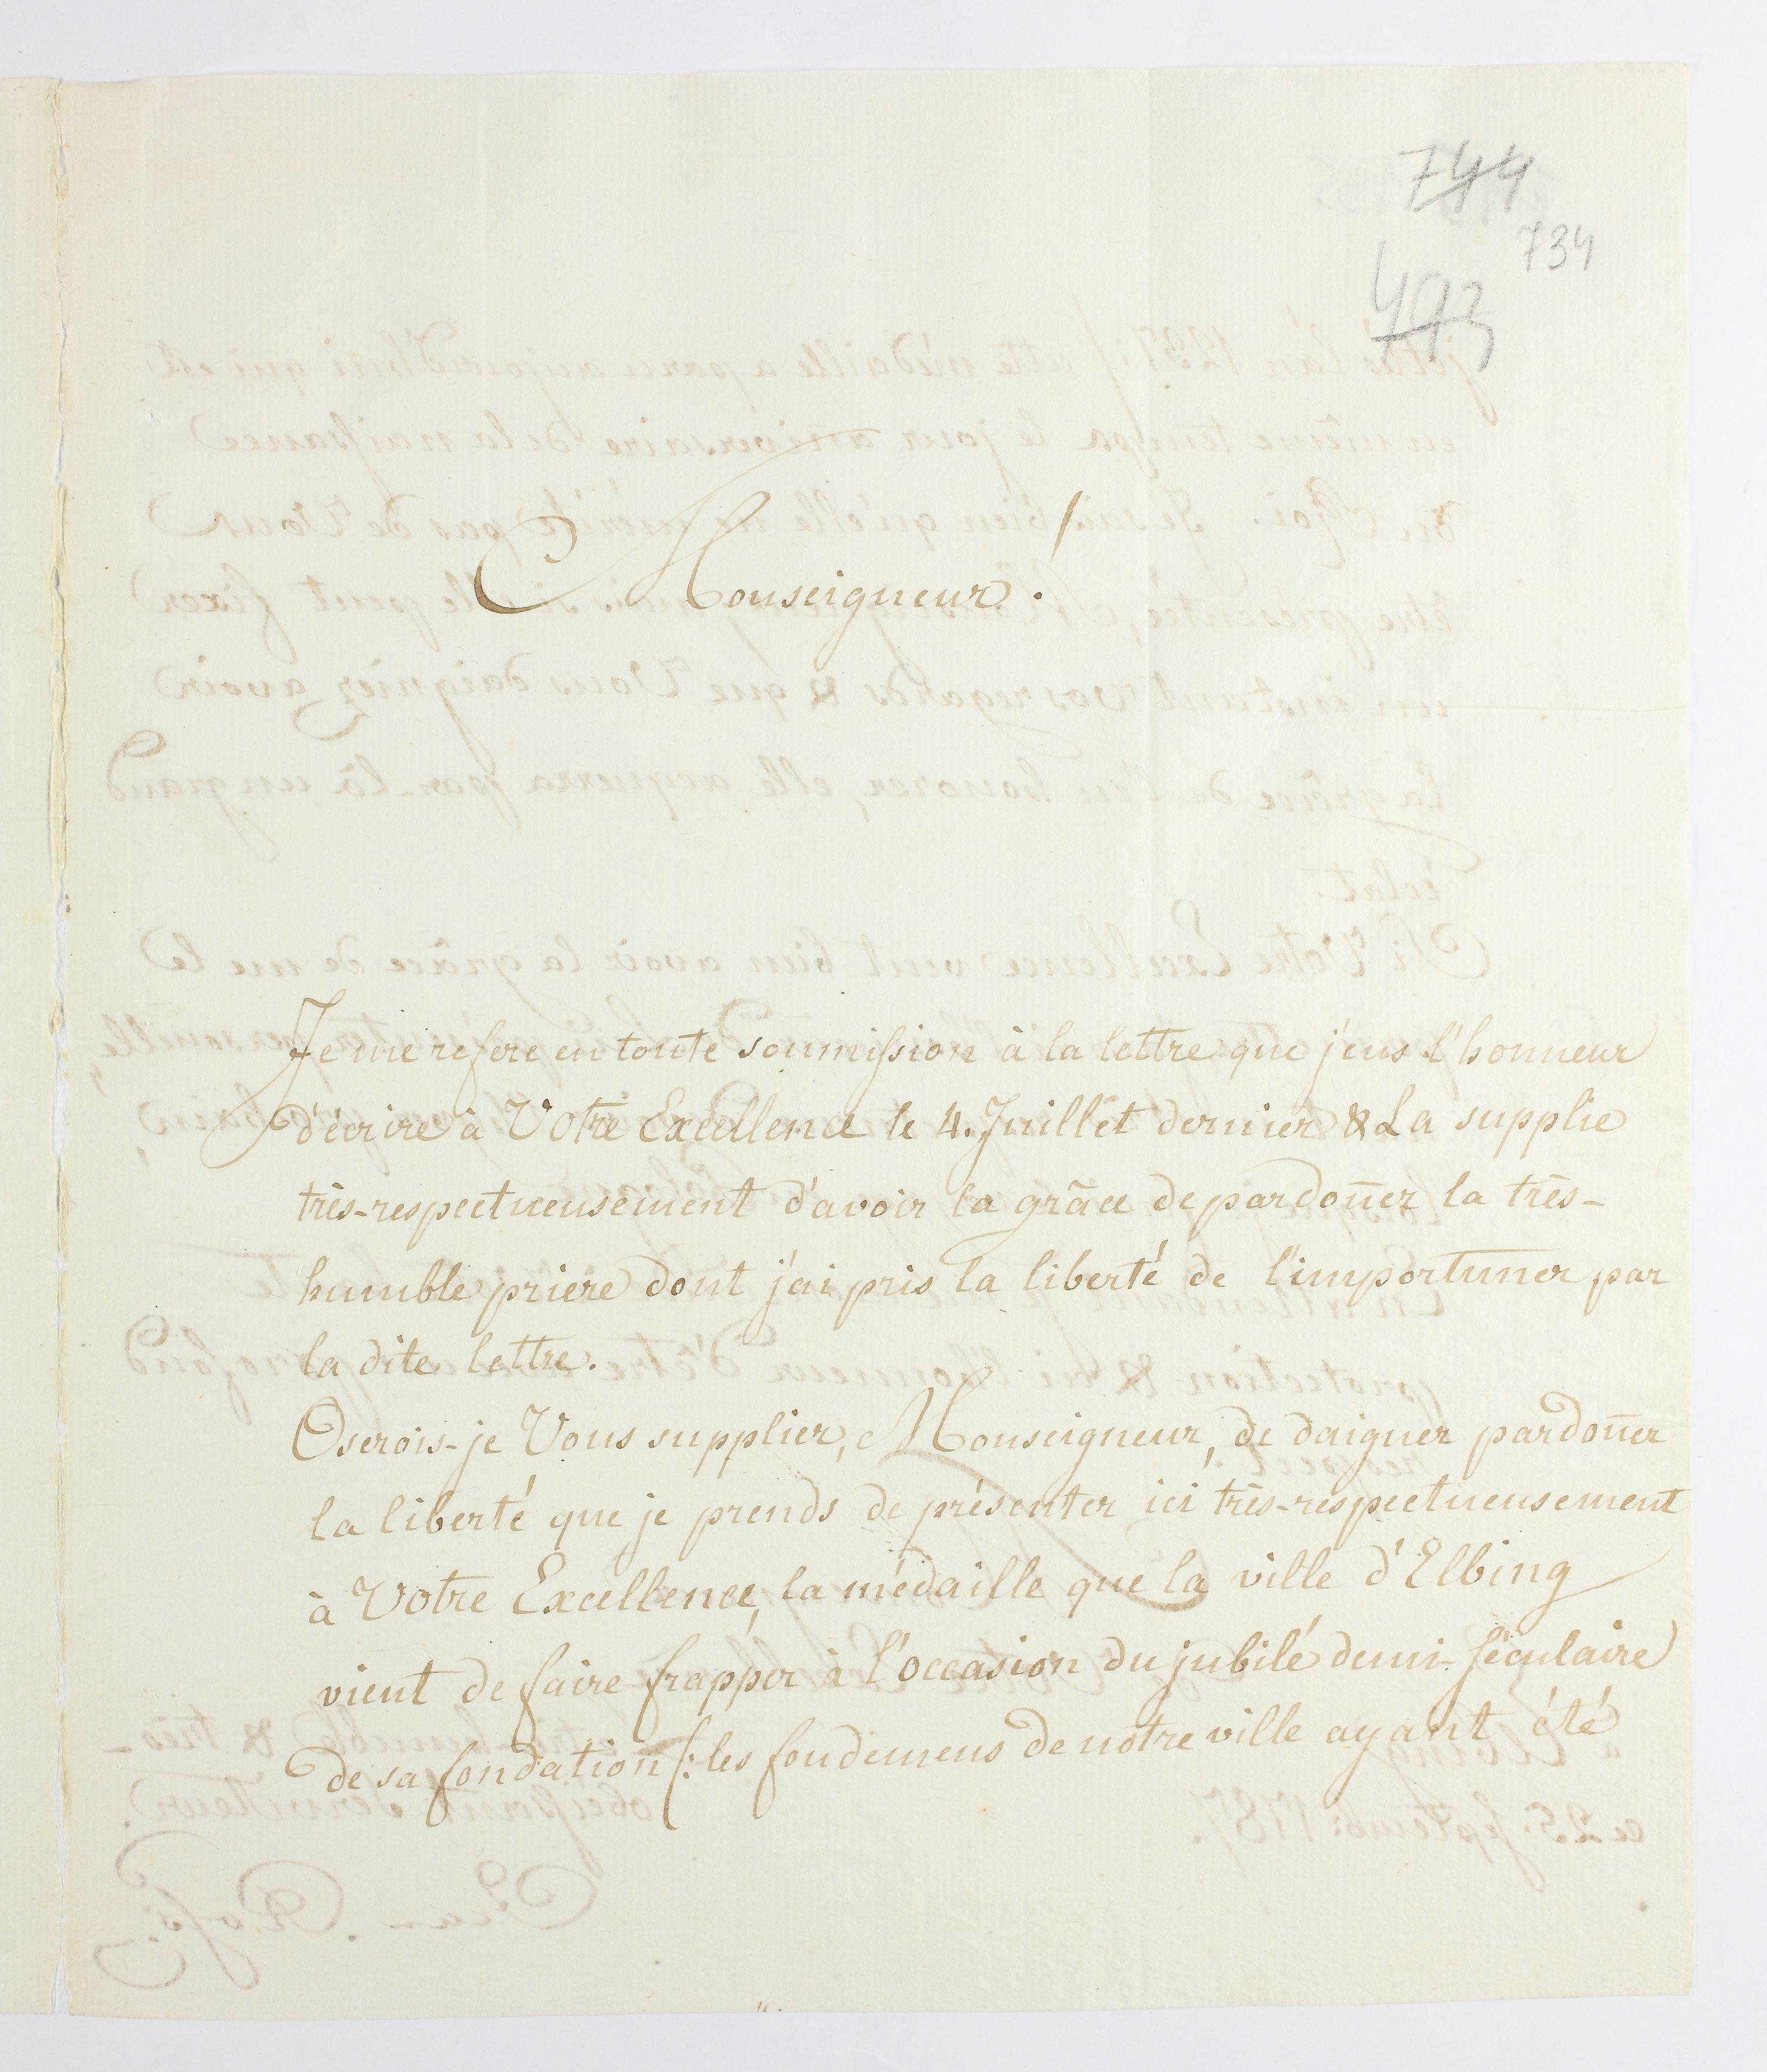 744
734
493
Monseigneur!
Je me refere en toute soumission à la lettre que j'eus l'honneur
d'écrire à Votre Excellence le 4. Juillet dernier & La supplie
très-respectueusement d'avoir la grâce de pardoñer la très-
humble priere dont j'ai pris la liberté de l'importuner par
la dite lettre.
Oserois-je Vous supplier, Monseigneur, de daigner pardoñer
la liberté que je prends de présenter ici très-respectueusement
à Votre Excellence, la médaille que la ville d'Elbing
vient de faire frapper à l'occasion du jubilé demi-séculaire
de sa fondation /: les fondemens de notre ville ayant été